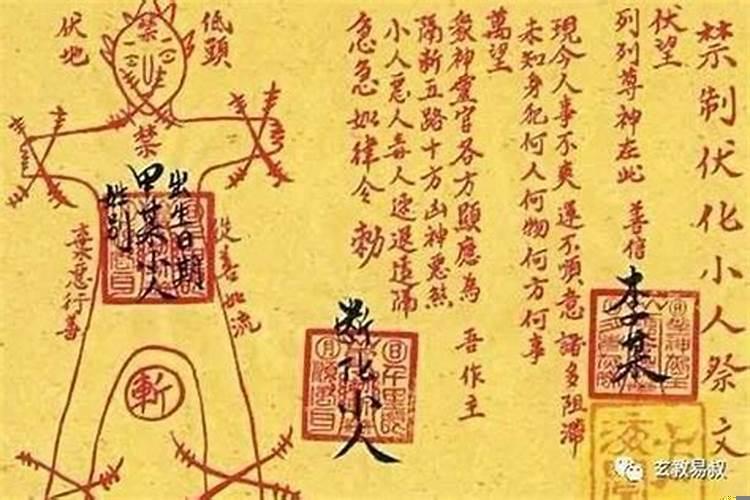 禁制伏化小人祭文
伏望
列列尊神在此 善信
李某
現今人事不爽 運不順意 諸多阻滯
未知身犯何人何物何方何事
萬望
衆神靈官各方顯應為 吾作主
隔斷五路十方凶神惡煞
小人惡人毒人速退遠隔
急急如律令 勅
斷化小人
低頭
伏地
禁
禁
出生日期
甲某小人
姓别
從善如流
棄惡行善
斬
玄教易叔